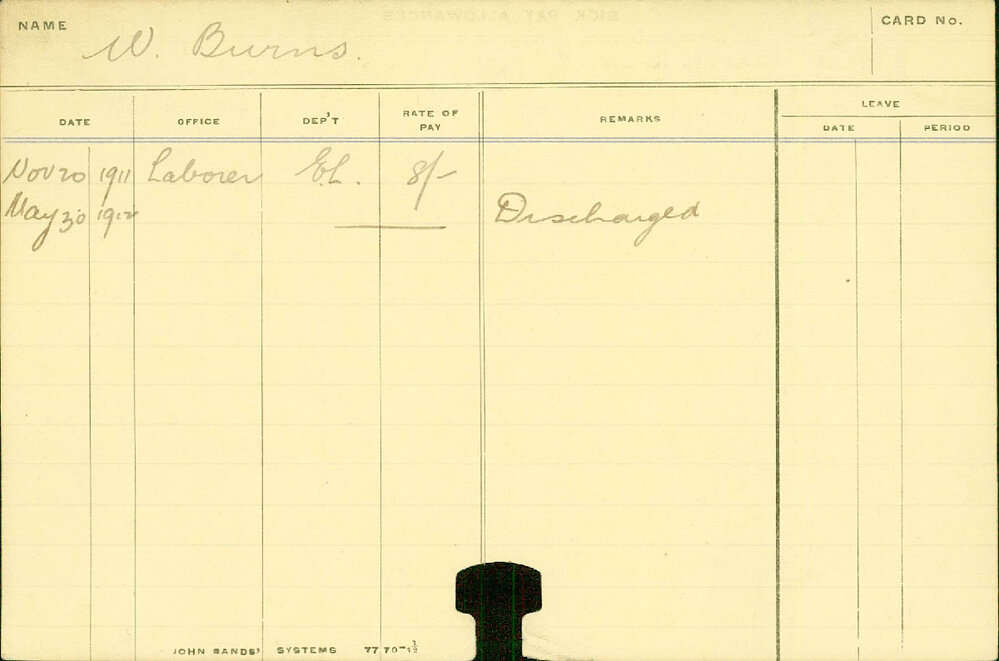 NAME W. Burns. CARD No.
LEAVE
DATE OFFICE DEP'T RATE OF PAY REMARKS DATE PERIOD
Nov 20 1911 Laborer E.L. 8/-
May 30 1912 Discharged
JOHN SANDS' SYSTEMS 77 70